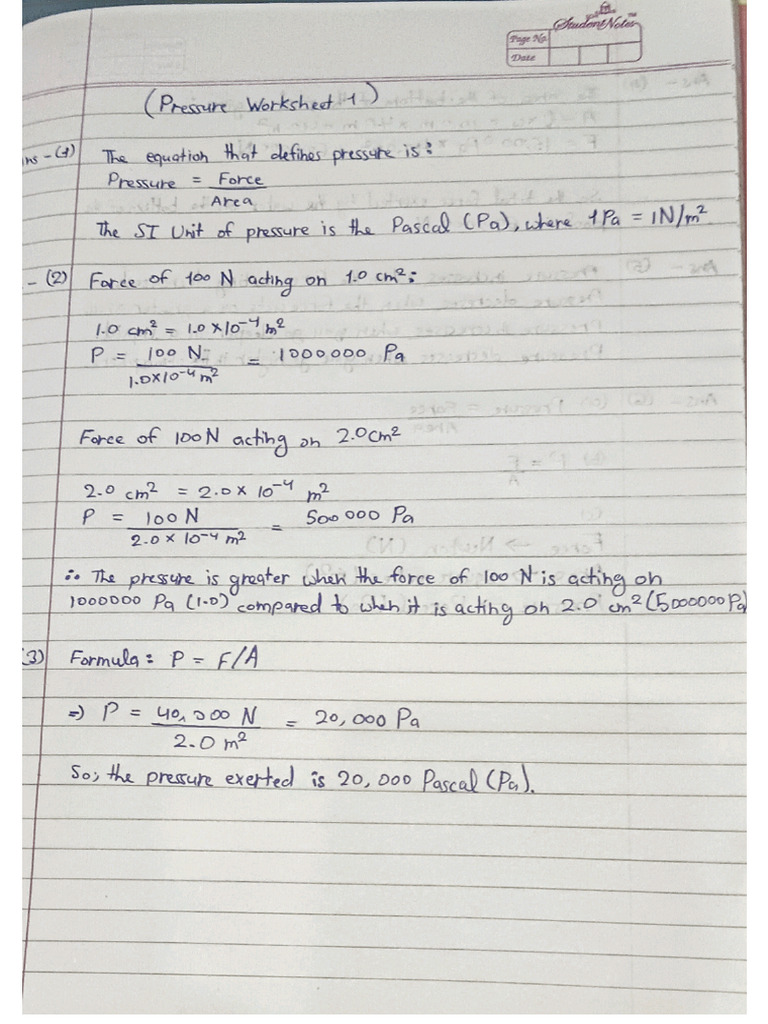 StudentNotes
Page No.
Date
(Pressure Worksheet 1)
ns - (1) The equation that defines pressure is:
Pressure = Force
Area
The SI Unit of pressure is the Pascal (Pa), where 1Pa = 1N/m²
- (2) Force of 100 N acting on 1.0 cm²:
1.0 cm² = 1.0 x 10⁻⁴ m²
P = 100 N = 1000000 Pa
1.0x10⁻⁴ m²
Force of 100N acting on 2.0cm²
2.0 cm² = 2.0 x 10⁻⁴ m²
P = 100 N = 500 000 Pa
2.0 x 10⁻⁴ m²
∴ The pressure is greater when the force of 100 N is acting on
1000000 Pa (1.0) compared to when it is acting on 2.0 cm² (5000000 Pa
(3) Formula: P = F/A
⇒ P = 40,000 N = 20,000 Pa
2.0 m²
So, the pressure exerted is 20,000 Pascal (Pa).